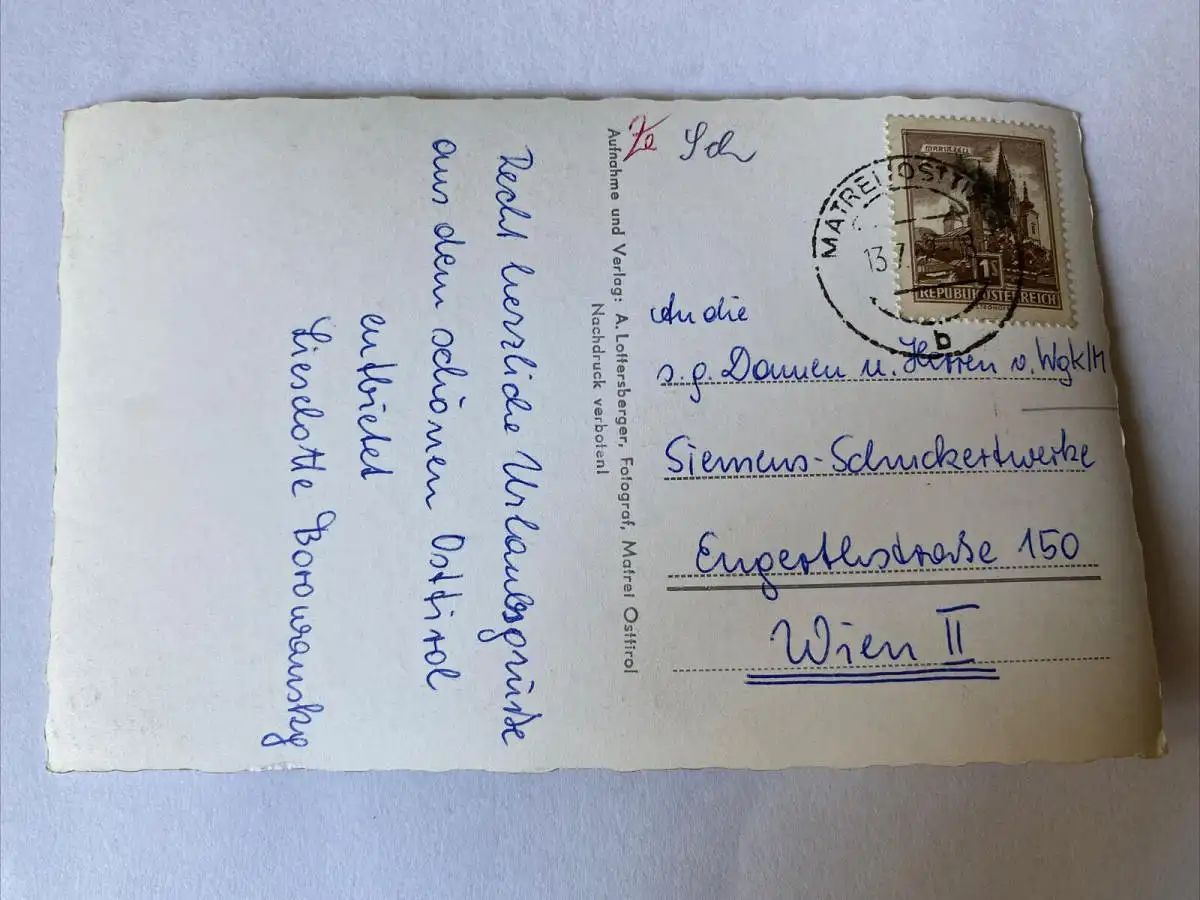 Recht herzliche Urlaubsgrüße
aus dem schönen Osttirol
entbietet
Lieselotte Borowansky
Aufnahme und Verlag: A. Loffersberger, Fotograf, Matrei Osttirol
Nachdruck verboten!
Sch
MARIAZELL
1S
REPUBLIK ÖSTERREICH
MATREI OSTTI
13.7.
b
An die
s.g. Damen u. Herren v. Wgk/M
Siemens-Schuckertwerke
Engerthstraße 150
Wien II